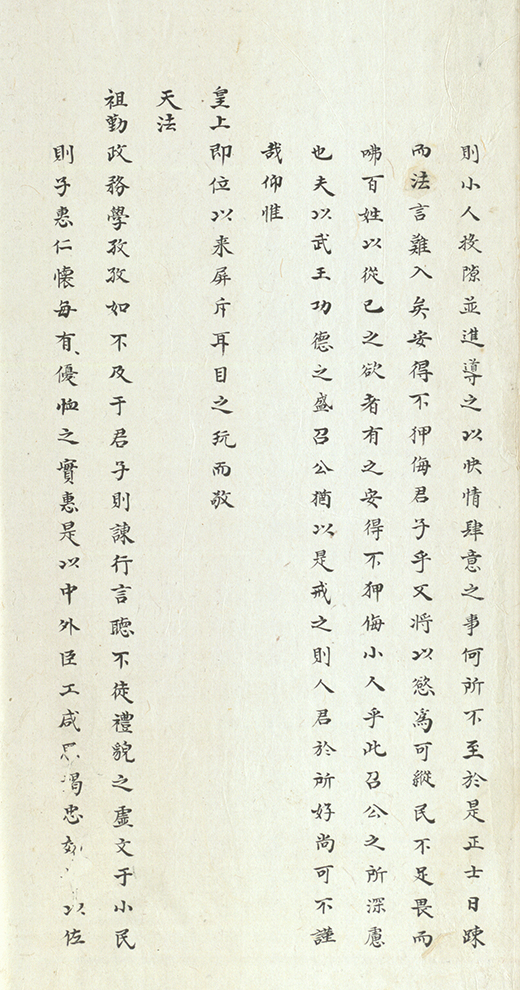 則小人投隙並進導之以快情肆意之事何所不至於是正士日踈
而法言難入矣安得不狎侮君子乎又將以慾為可縱民不足畏而
咈百姓以從己之欲者有之安得不狎侮小人乎此召公之所深慮
也夫以武王功德之盛召公猶以是戒之則人君於所好尚可不謹
哉仰惟
皇上即位以来屏斥耳目之玩而敬
天法
祖勤政務學孜孜如不及于君子則諫行言聽不徒禮貌之虚文于小民
則子惠仁懷每有優恤之實惠是以中外臣工咸思竭忠以佐